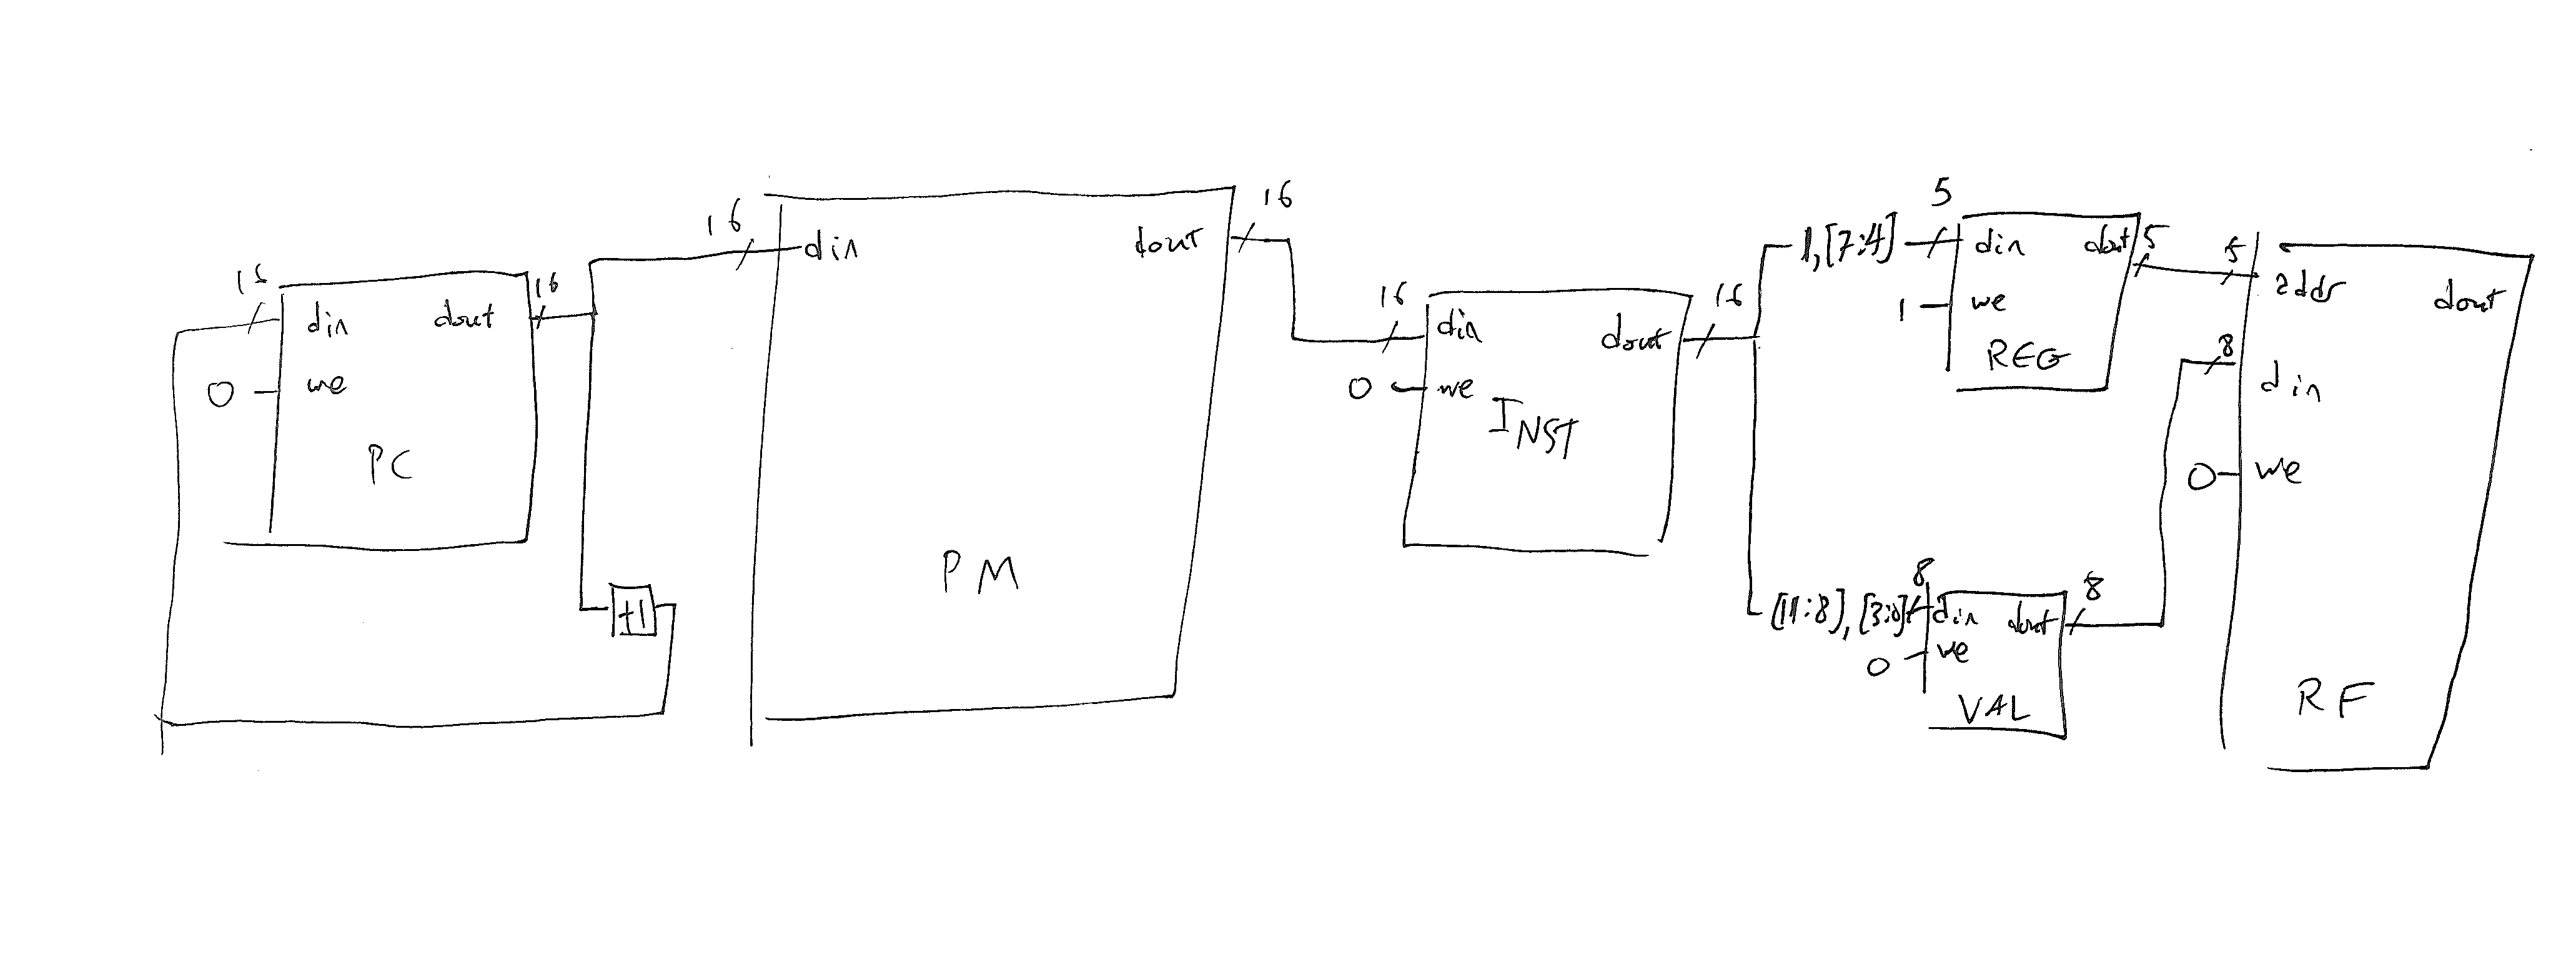 16
din
dout
16
0
we
PC
+1
16
din
dout
16
PM
16
din
dout
16
0
we
INST
1,[7:4]
5
din
dout
5
1
we
REG
[11:8],[3:0]
8
din
dout
8
0
we
VAL
5
addr
dout
8
din
0
we
RF